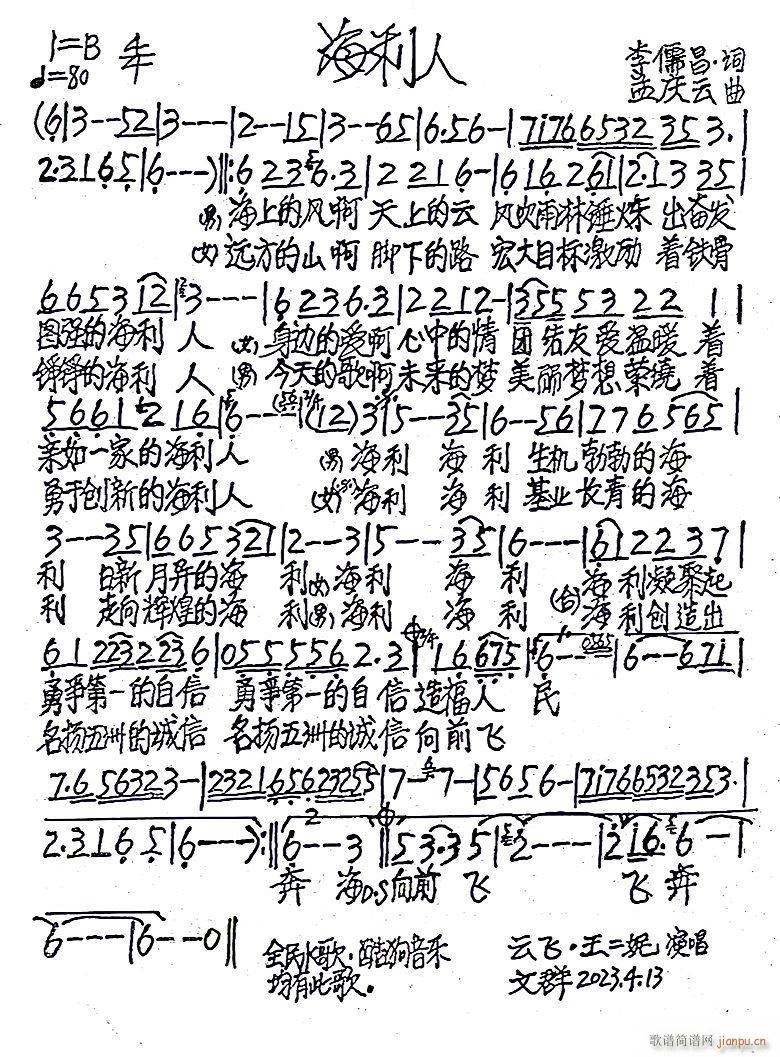 1=B 4/4 海利人 李儒昌·词
♩=80 孟庆云 曲
(6|3--52|3---|2--15|3--65|6.56-|7i766532353.|
2.3165|6---)‖:62356.3|2216-|616261|2.1335|
(男)海上的风啊 天上的云 风吹雨林锤炼 出奋发
(女)远方的山啊 脚下的路 宏大目标激励 着铁骨
6653 12|3---|6236.3|2212-|355532211|
图强的海利 人 (女)身边的爱啊 心中的情 团结友爱温暖 着
铮铮的海利 人 (男)今天的歌啊 未来的梦 美丽梦想萦绕 着
56612216|6---|2/4(12)3|5--35|6--56|776565|
亲如一家的海利人 (男)海利 海利 生机勃勃的海
勇于创新的海利人 (女)海利 海利 基业长青的海
3--35|665321|2--3|5---35|6---|612237|
利 日新月异的海 利(女)海利 海利 海利凝聚起
利 走向辉煌的海 利(男)海利 海利 (合)海利创造出
61223 2236|0555562.3|2/4 16675|6---0365|6--671|
勇争第一的自信 勇争第一的自信造福人 民
名扬五洲的诚信 名扬五洲的诚信向前飞
7.656323-|2321656232 55|7--7-|5656-|7i766532353.|
2.3165|6---):‖6--3‖53.35|2----|2i6.6--|
奔 海D.S向前 飞 飞奔
6---|6--0‖
全民K歌·酷狗音乐 云飞·王二妮 演唱
均有此歌。 文群 2023.4.13
歌谱简谱网
jianpu.cn